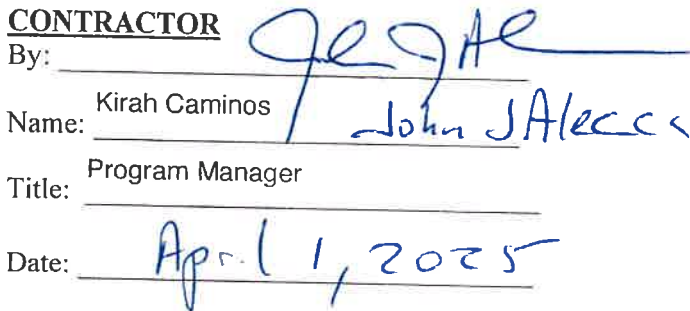 CONTRACTOR
By:
Name: Kirah Caminos John J Alecca
Title: Program Manager
Date: April 1, 2025